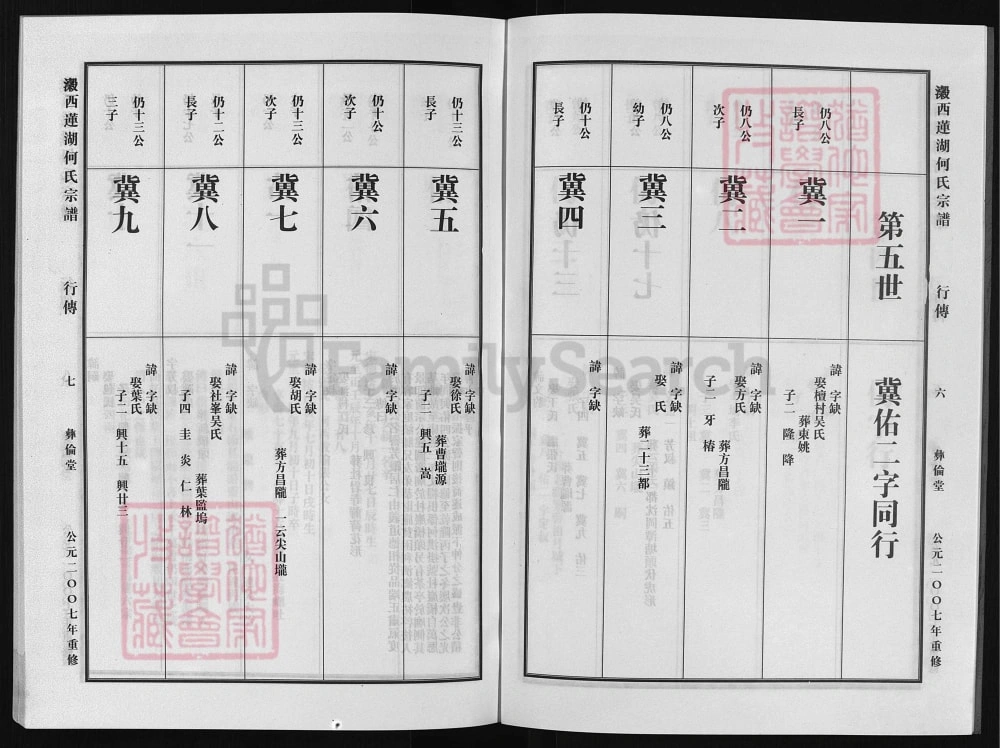 瀫西蓮湖何氏宗譜　行傳　六　彝倫堂　公元二〇〇七年重修
第五世　冀佑二字同行
仍八公
長子
冀一
諱　字缺
娶檀村吴氏
葬東姚
子二　隆　降
仍八公
次子
冀二
諱　字缺
娶方氏
葬方昌隴
子二　牙　椿
仍八公
幼子
冀三
諱　字缺
娶　氏
葬二十三都
仍十公
長子
冀四
諱　字缺
仍十三公
長子
冀五
諱　字缺
娶徐氏
葬曹壠源
子二　興五　嵩
仍十公
次子
冀六
諱　字缺
仍十三公
次子
冀七
諱　字缺
娶胡氏
葬方昌隴　一云尖山壠
仍十二公
長子
冀八
諱　字缺
娶社峯吴氏
葬葉監塢
子四　圭　炎　仁　林
仍十三公
三子
冀九
諱　字缺
娶葉氏
子二　興十五　興廿三
瀫西蓮湖何氏宗譜　行傳　七　彝倫堂　公元二〇〇七年重修
FamilySearch